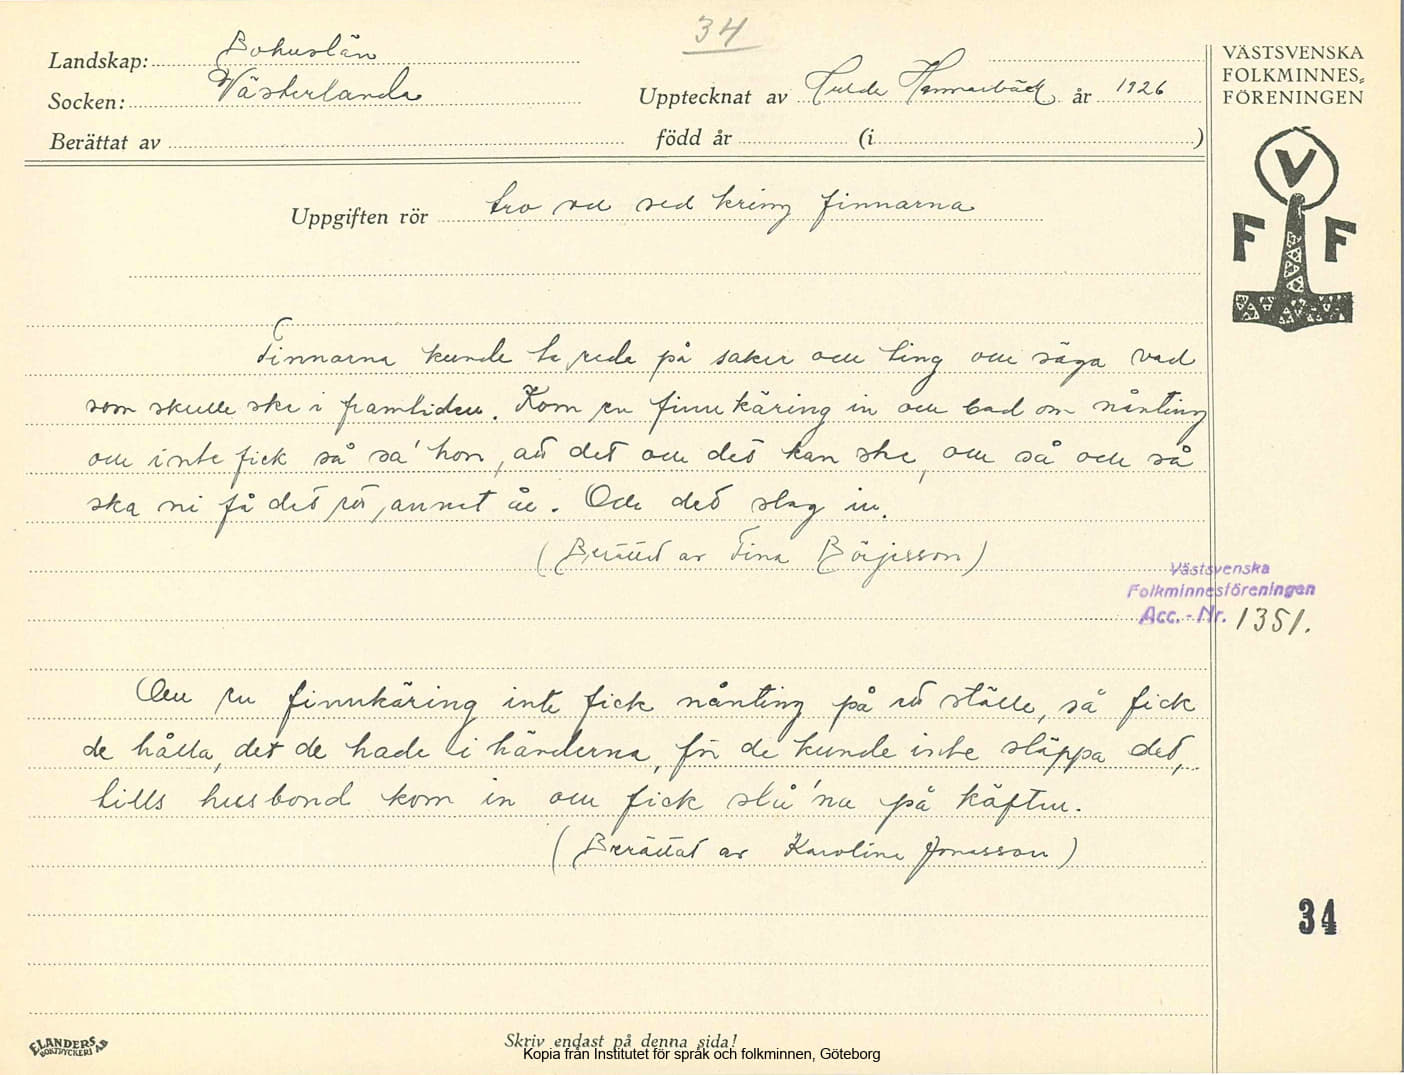 34
Landskap: Bohuslän
Socken: Västerlanda
Upptecknat av Hulda Hammarbäck år 1926
Berättat av
född år (i )
VÄSTSVENSKA
FOLKMINNES=
FÖRENINGEN
V
F F
Uppgiften rör tro och sed kring finnarna
Finnarna kunde ta reda på saker och ting och säga vad
som skulle ske i framtiden. Kom en finnkäring in och bad om nånting
och inte fick så sa' hon, att det och det kan ske, och så och så
ska ni få det ett annat år. Och det slog in.
(Berättat av Tina Börjesson)
Västsvenska
Folkminnesföreningen
Acc.-Nr. 1351.
Om en finnkäring inte fick nånting på ett ställe, så fick
de hålla, det de hade i händerna, för de kunde inte släppa det,
tills husbond kom in och fick slå 'na på käften.
(Berättat av Karolina Jonasson)
34
ELANDERS
BOKTRYCKERI AB
Skriv endast på denna sida!
Kopia från Institutet för språk och folkminnen, Göteborg